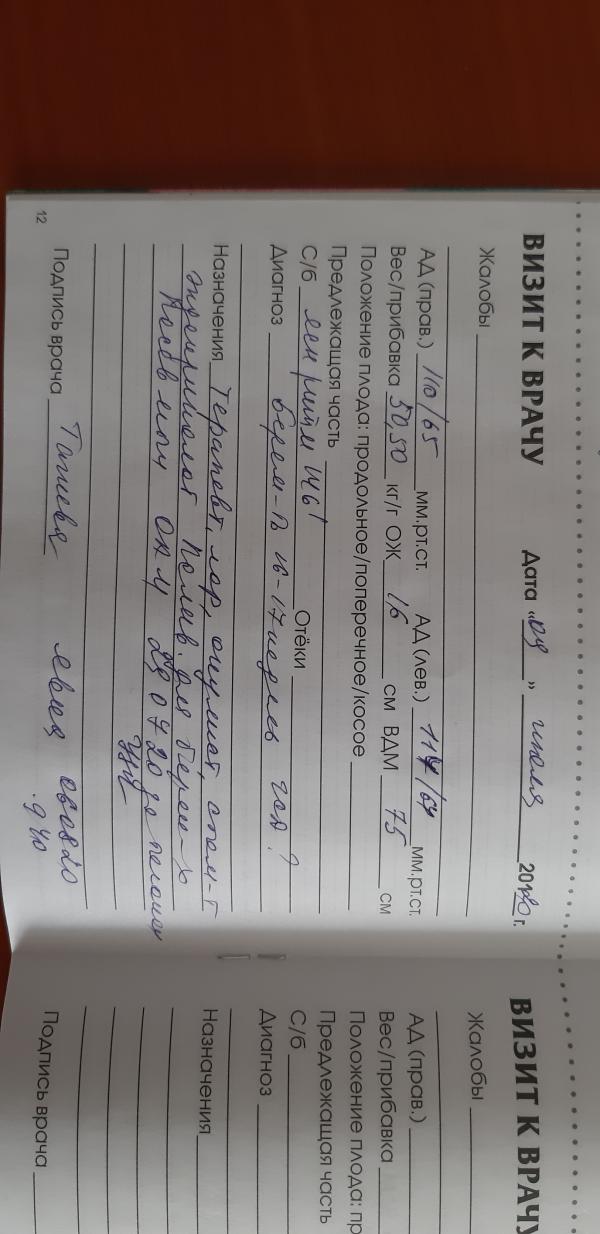 ВИЗИТ К ВРАЧУ Дата «09» июля 2020 г.
Жалобы
АД (прав.) 110/65 мм.рт.ст. АД (лев.) 114/64 мм.рт.ст.
Вес/прибавка 50,50 кг/г ОЖ 16 см ВДМ 75 см
Положение плода: продольное/поперечное/косое
Предлежащая часть
С/б ясн ритм 146' Отёки
Диагноз берем-ть 16-17 недель
Назначения Терапевт, лор, окулист, стом-г
для берем-х
Подпись врача
12
ВИЗИТ К ВРАЧУ
Жалобы
АД (прав.)
Вес/прибавка
Положение плода: пр
Предлежащая часть
С/б
Диагноз
Назначения
Подпись врача